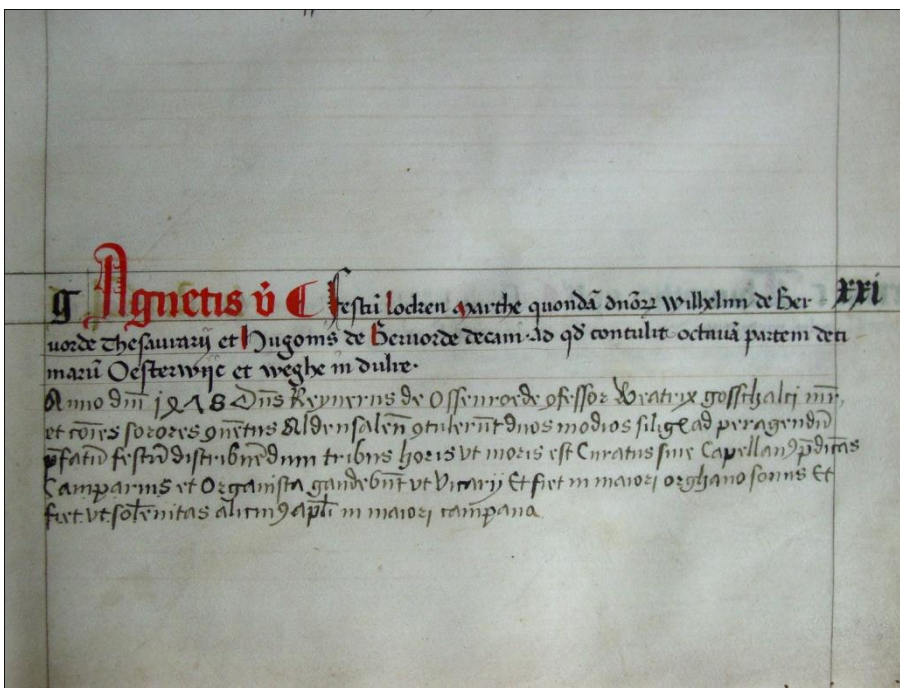 g Agnetis v̄ C festū locken marthe quondā dn̄orꝝ wilhelmi de Ber xxi
uorde Thesaurarij et Hugonis de Beruorde decani · ad qd̄ contulit octauā partem deci
marū Oesterwijc et weghe in dulre ·
Anno dn̄i Dn̄s Reynerus de Ossenroede ꝯfessor Beatrix gosschalci mr̄,
et cōies sorores ꝯuētus Aldensalen̄ ꝯtulerūt duos modios siliḡ ad peragendū
p̄fatū festū distribuēdum tribus horis vt moris est Curatus siue Capellanꝰ p̄dicās
Camparius et Organista gaudebūt vt vicarij Et fiet in maiori orghano sonus Et
fiet vt solēnitas alicuiꝰ apl̄i in maiori campana